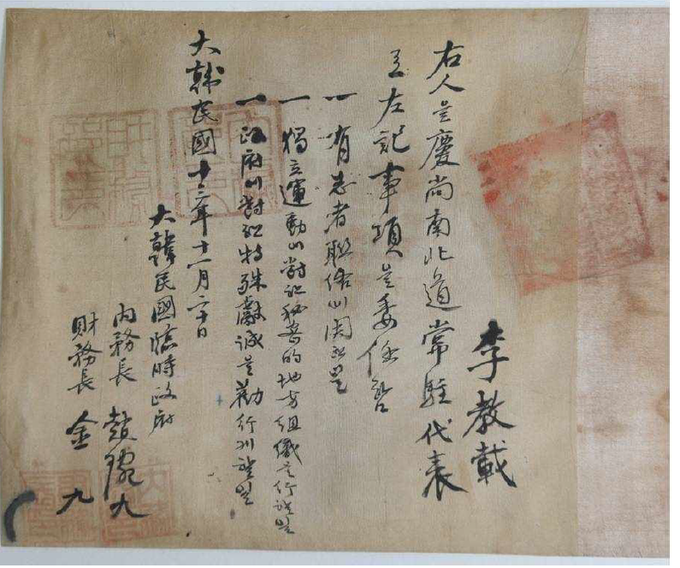 李教載
右人을慶尚南北道常駐代表
로左記事項을委任함
一 有志者聯絡에関한일
一 獨立運動에對한秘密的地方組織을行할일
一 政府에對한特殊獻誠을勸行케할일
大韓民國十三年十一月二十日
大韓民國臨時政府
內務長 趙琬九
財務長 金九